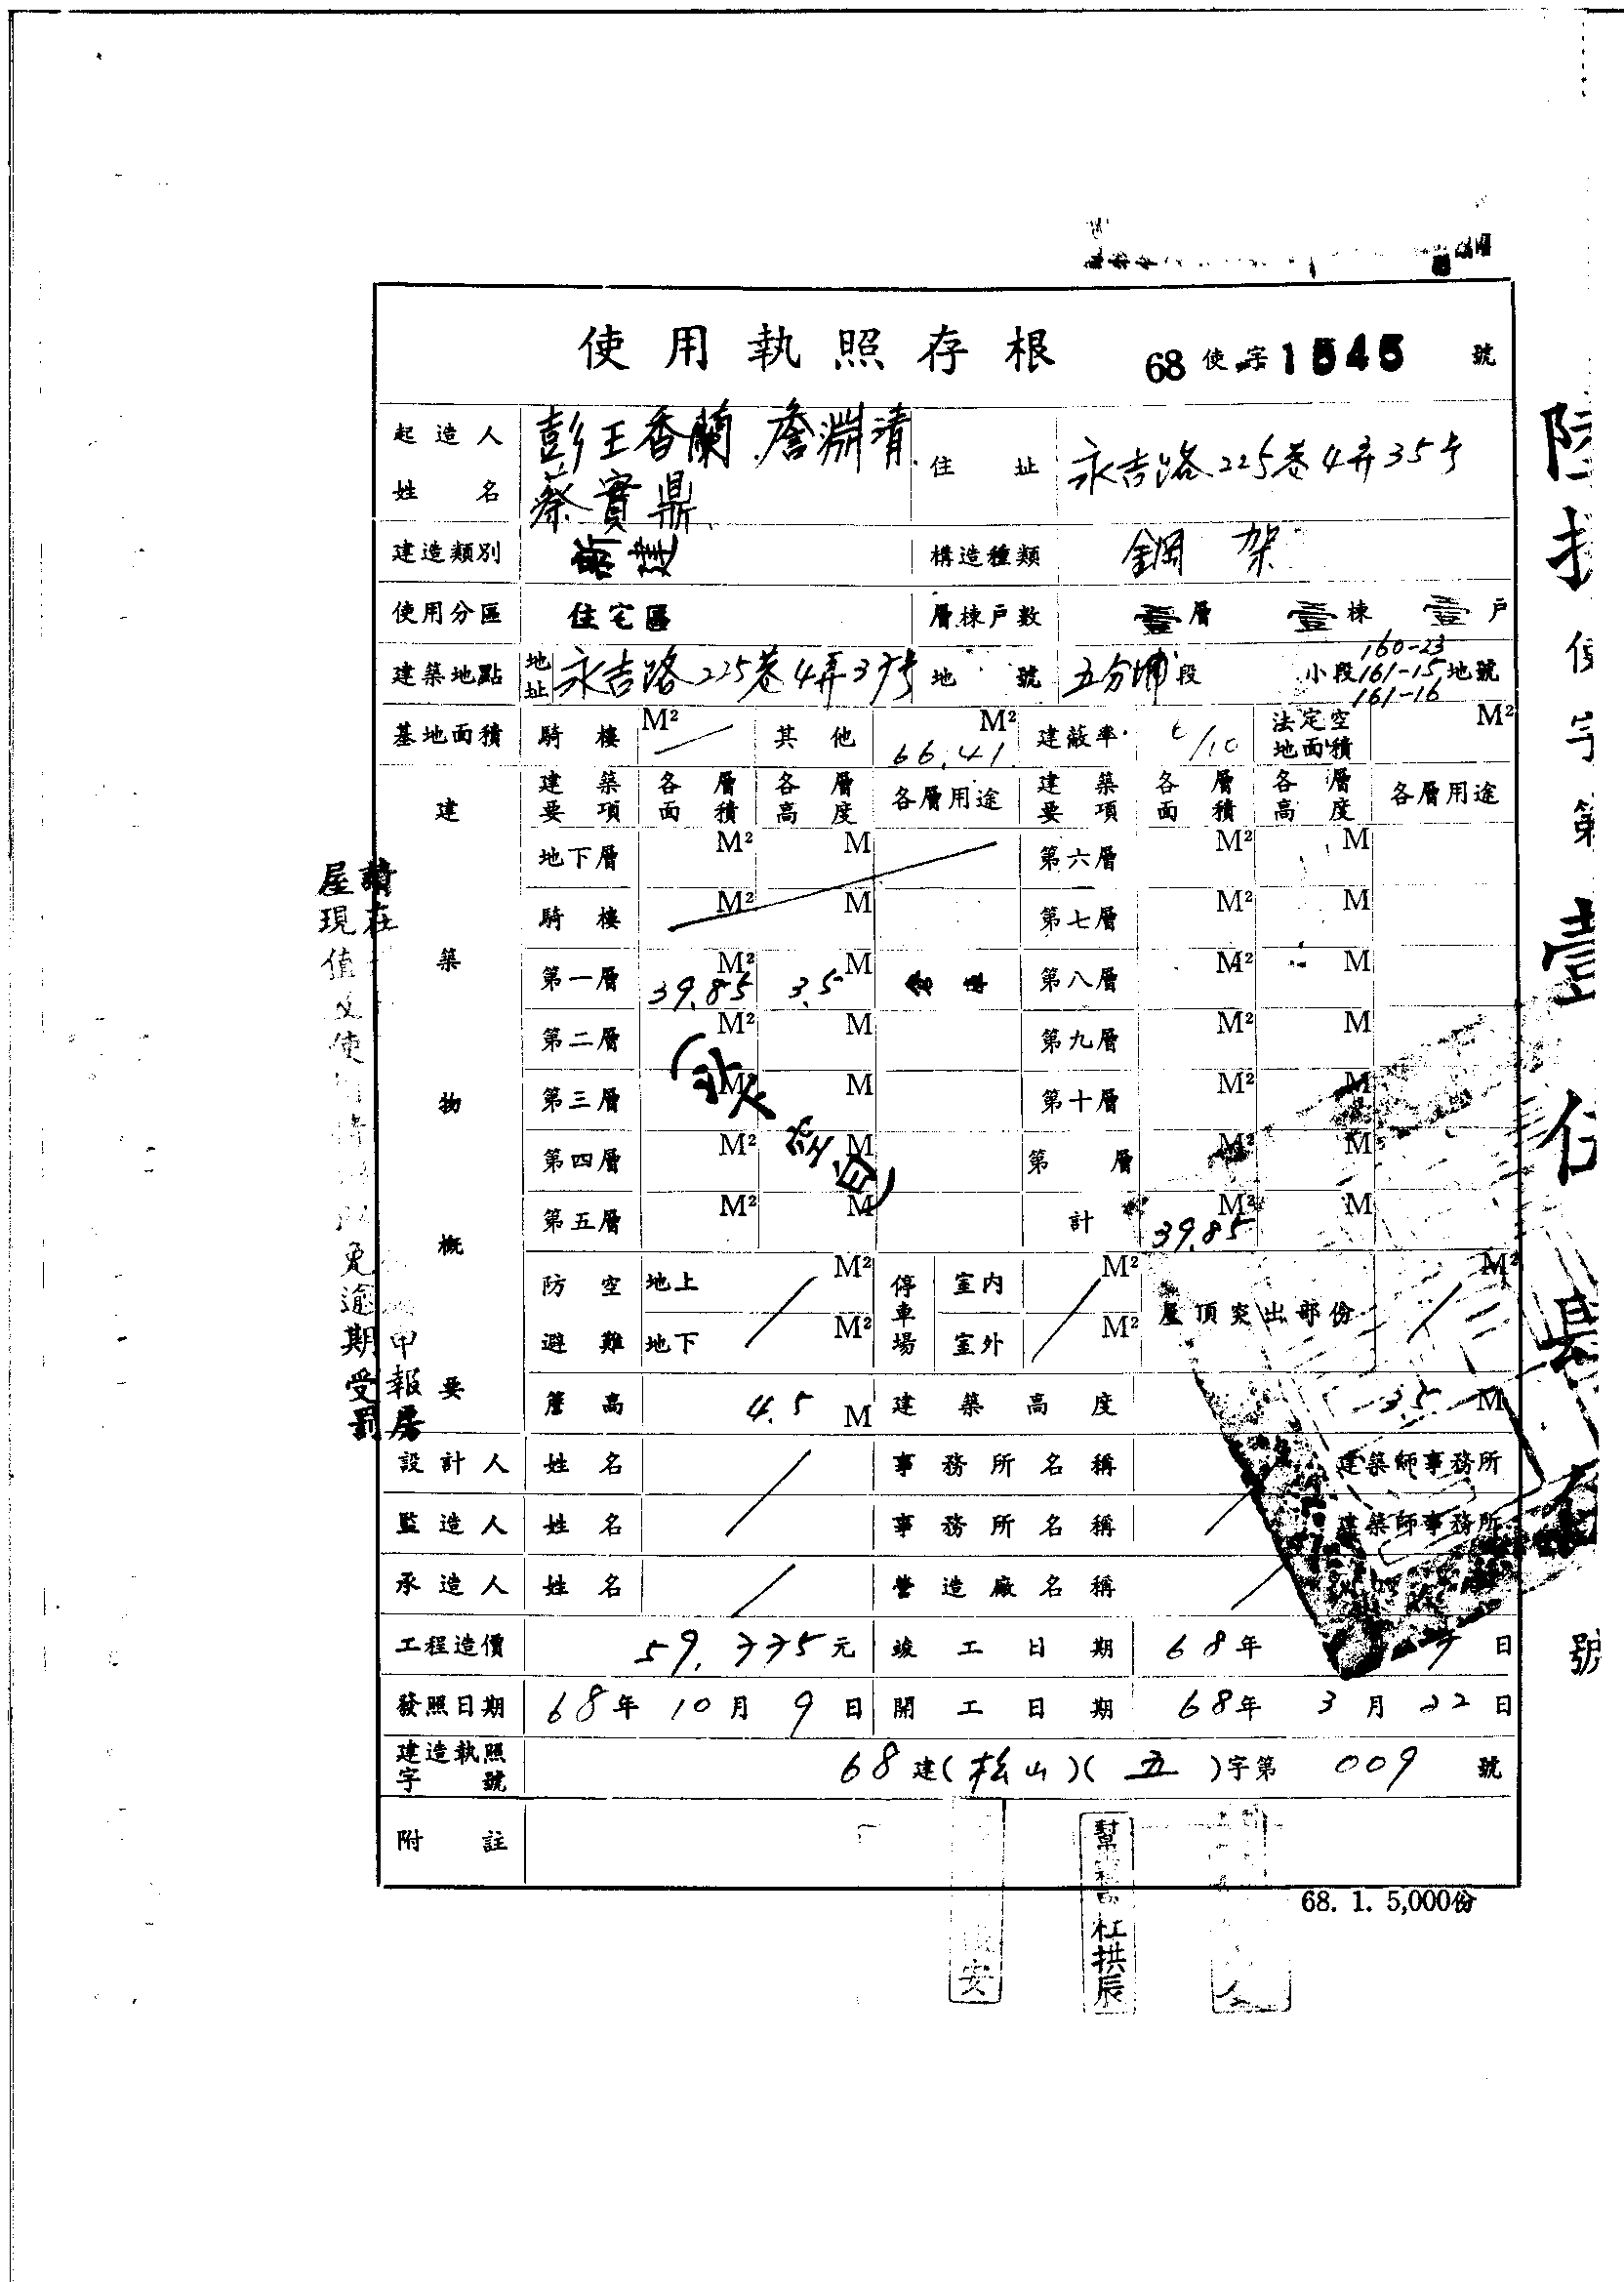 使用執照存根 68使字1545號
起造人姓名 彭王香蘭 詹淵清 蔡寶鼎 住址 永吉路225巷4弄35号
建造類別 構造種類 鋼架
使用分區 住宅區 層棟戶數 壹層 壹棟 壹戶
建築地點 地址 永吉路225巷4弄37号 地號 五分埔段 小段 160-23 161-15 161-16 地號
基地面積 騎樓 M² 其他 66.41 M² 建蔽率 6/10 法定空地面積 M²
建築物概要
建築要項 各層面積 各層高度 各層用途 建築要項 各層面積 各層高度 各層用途
地下層 M² M 第六層 M² M
騎樓 M² M 第七層 M² M
第一層 39.85 M² 3.5 M 第八層 M² M
第二層 M² M 第九層 M² M
第三層 M² M 第十層 M² M
第四層 M² M 第 層 M² M
第五層 M² M 計 39.85 M² M
(以下空白)
防空避難 地上 M² 停車場 室內 M² 屋頂突出部份 M²
地下 M² 室外 M²
簷高 4.5 M 建築高度 3.5 M
設計人 姓名 事務所名稱 建築師事務所
監造人 姓名 事務所名稱 建築師事務所
承造人 姓名 營造廠名稱
工程造價 59,775元 竣工日期 68年 日
發照日期 68年10月9日 開工日期 68年3月22日
建造執照字號 68建(松山)(五)字第009號
附註
68. 1. 5,000份
安
杜拱辰
請在
申報房
屋現值及使
免逾期受罰
陸拾
使字第壹仟
號